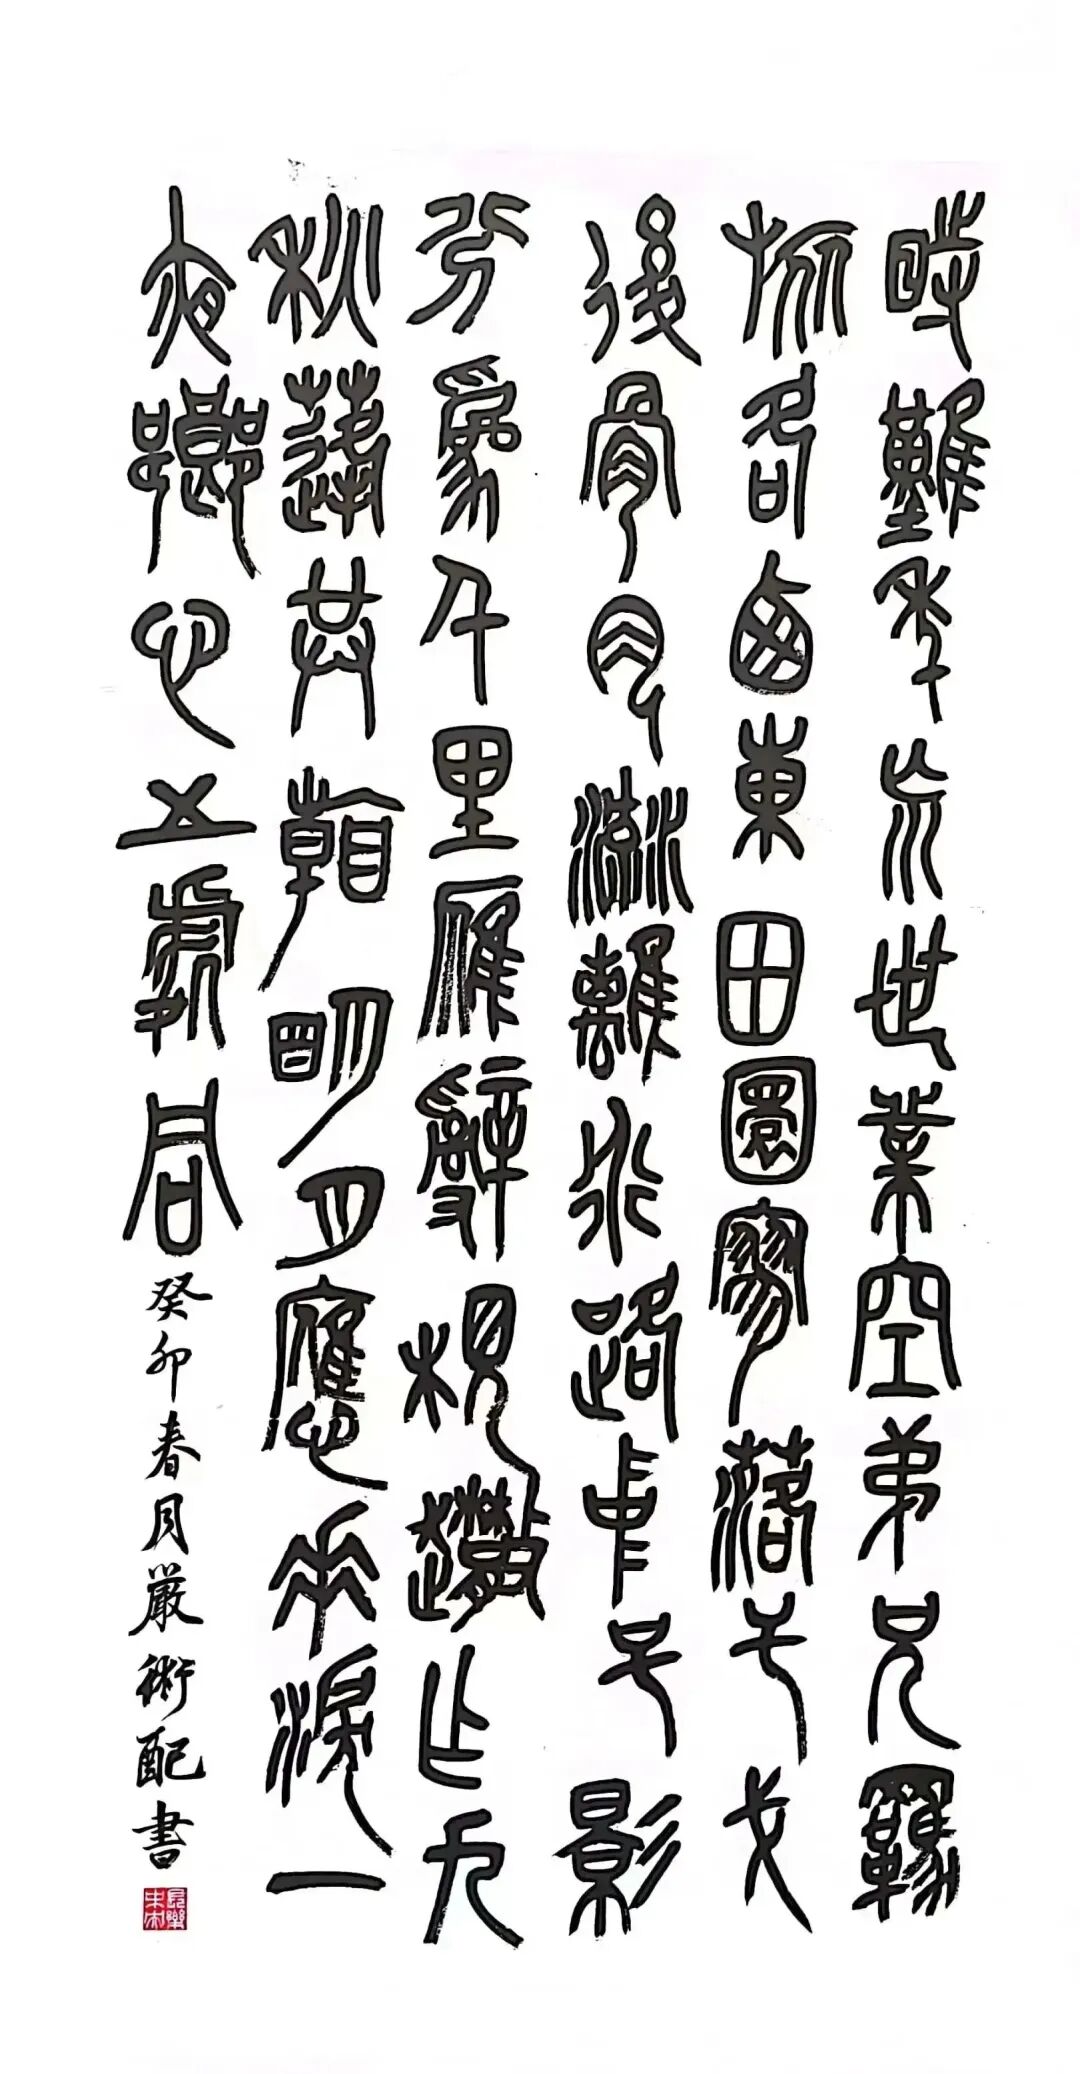 時難年荒世業空弟兄羈
旅各西東田園寥落干戈
後骨肉流離道路中弔影
分為千里雁辭根散作九
秋蓬共看明月應垂淚一
夜鄉心五處同癸卯春月嚴術配書